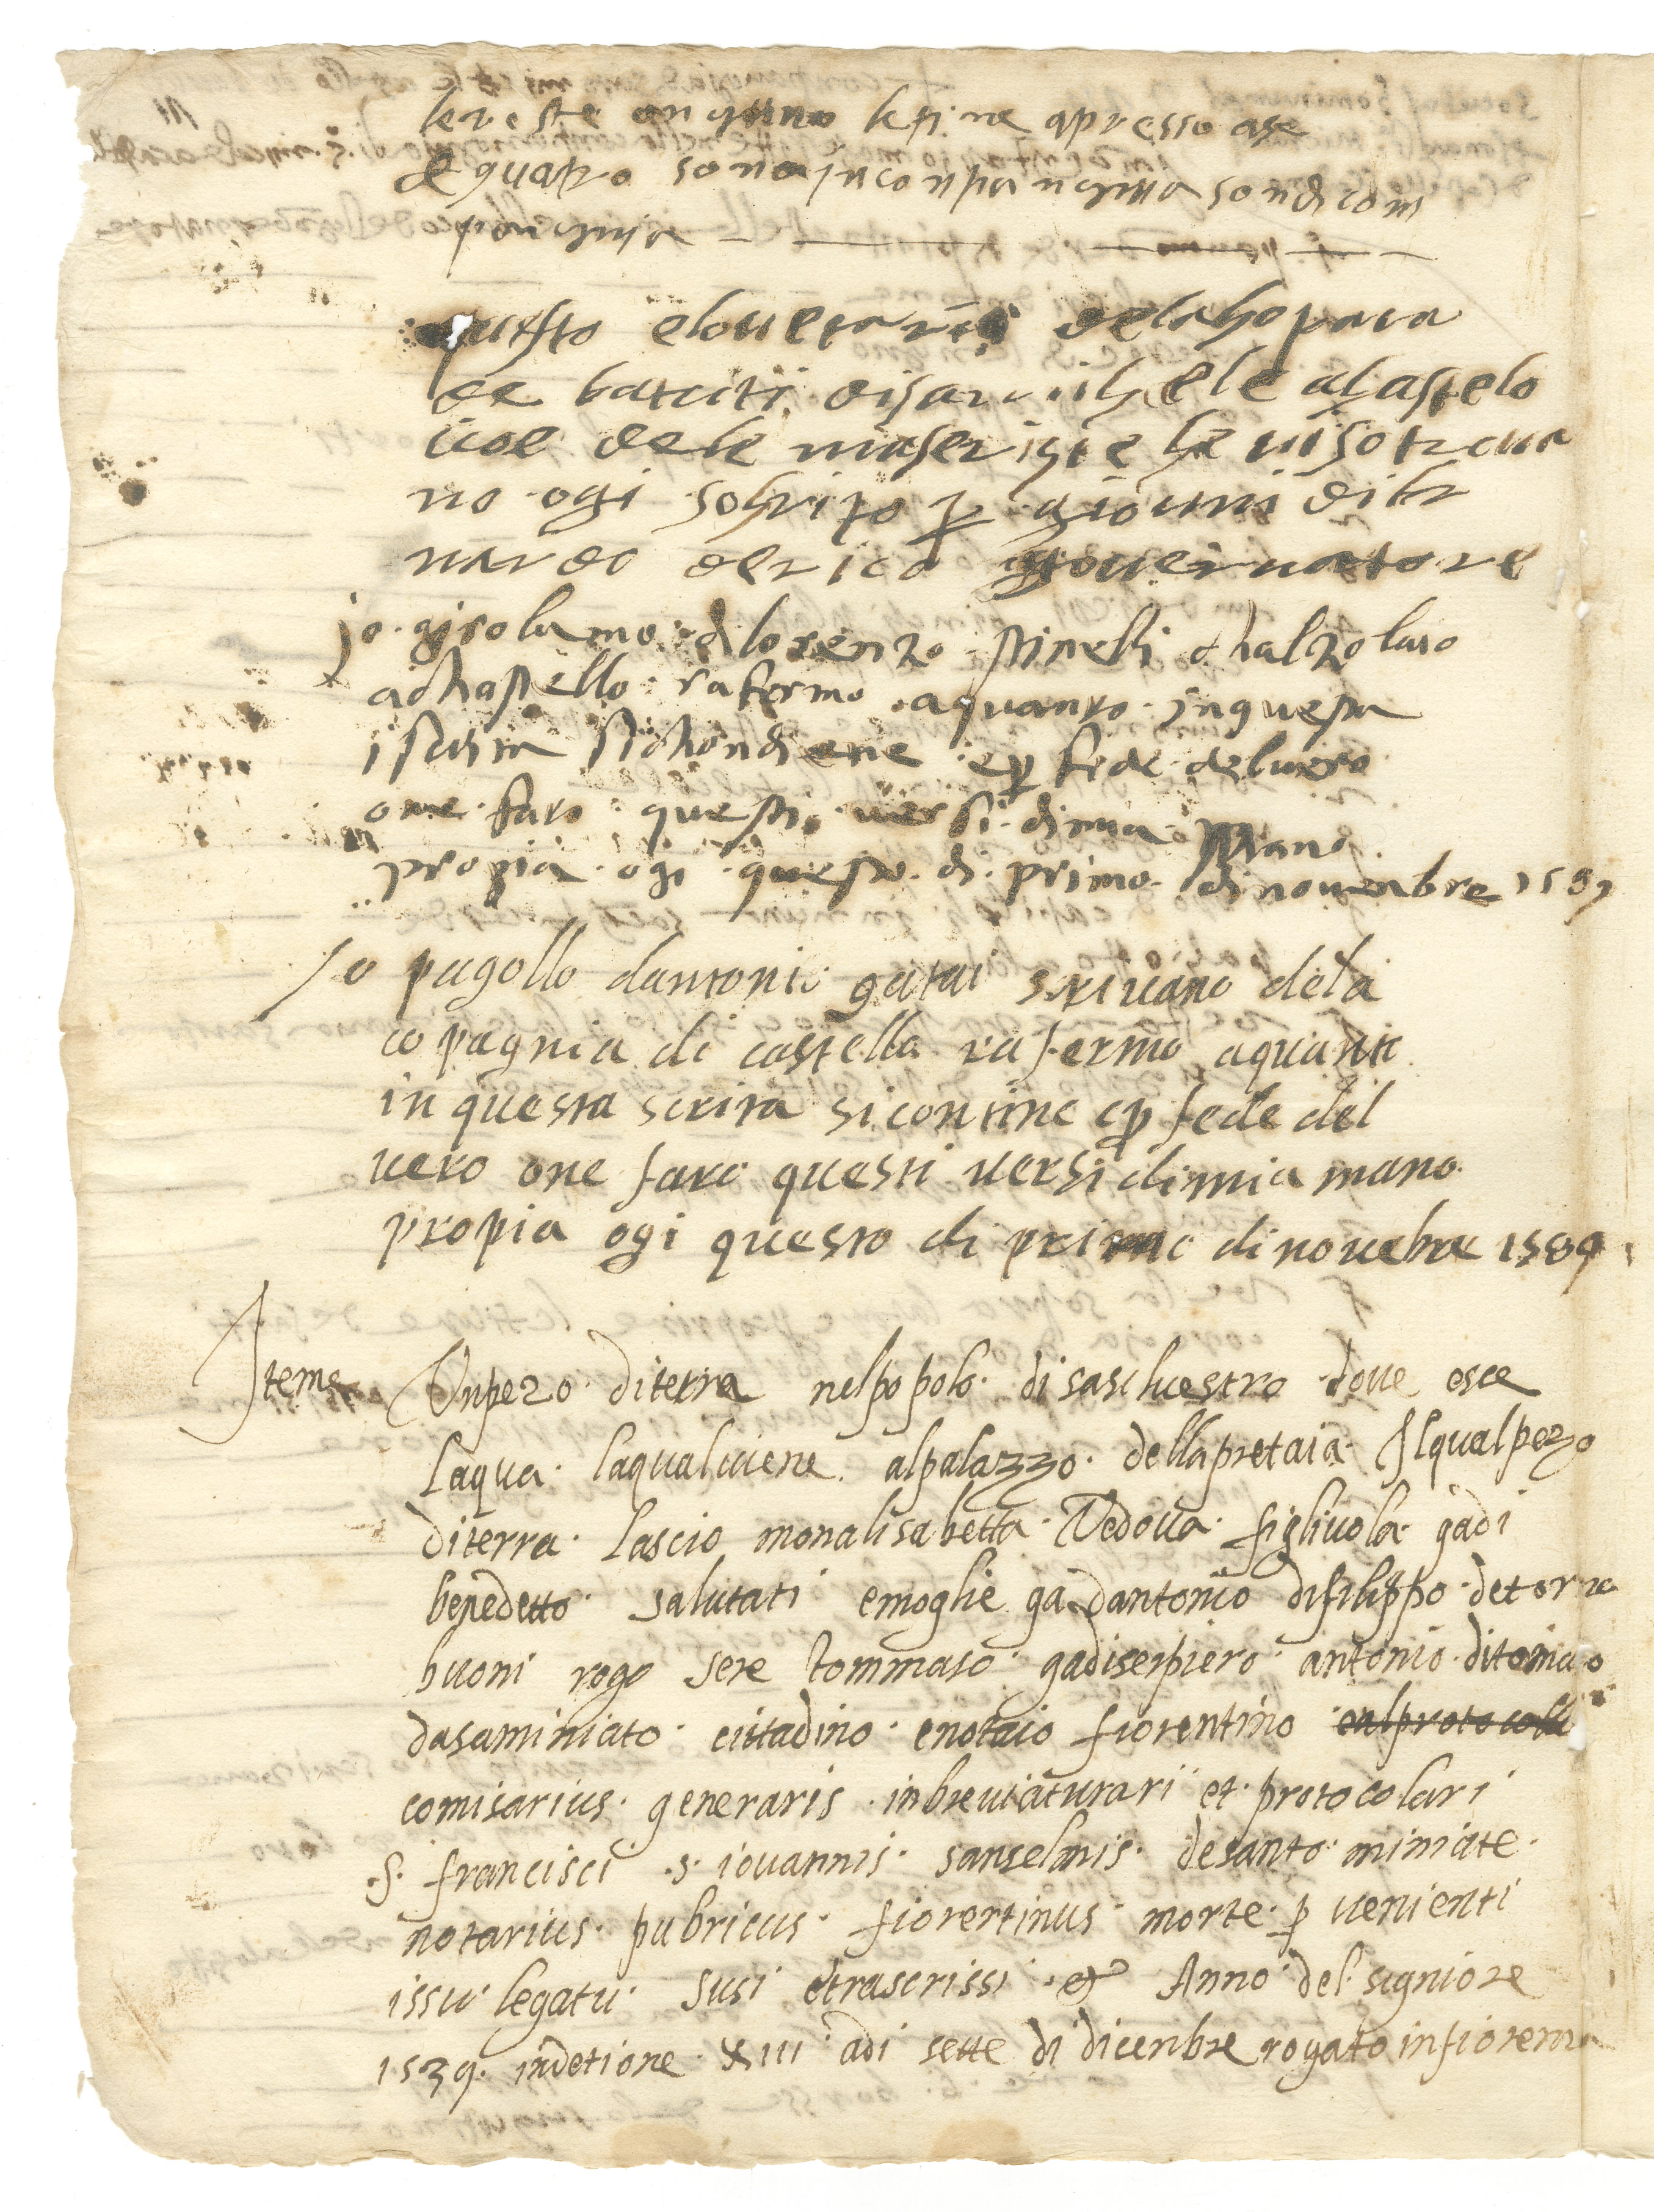 le veste ongnuno le tine apresso ase
e quatro sono in conpangnia son di com
pangnia
questo elouetario delchopaia
de batuti disan michele alchastelo
icoe dele maserizie che visotrova
no ogi schrito per giovani di br
nardo derico ghovernatore
jo girolamo di lorenzo pinelli chalzolaro
a chastello rafermo aquanto in questa
iscrita si chondiene e per fede del vero
one fato questi versi di mia mano
propia ogi questo di primo di novenbre 1589
Jo pagollo dantonio gatai scrivano dela
copagnia di castello rafermo aquanto
in questa scrita si contine e per fede del
vero one fato questi versi di mia mano
propia ogi questo di primo di novebre 1589
Iteme Unpezo diterra nelpopolo disasiluestro doue esce
laqua laqualuiene alpalazzo dellapretaia Ilqualpezo
diterra lascio monalisabetta Vedoua figliuola gadi
benedetto salutati emoglie ga dantonio difilippo detorna
buoni rogo sere tommaso gadiserpiero antonio ditomaso
dasaminiato cittadino enotaio fiorentino enlprotocollo
comisarius generaris inbreuiaturari et protocolari
.S. francisci .s. iouannis sanselmis desanto miniate
notarius pubricus fiorertinus morte p uenienti
issu legatu susi etrascrissi & Anno del signiore
1539. indetione XIII adi sette di dicenbre rogato infiorenza